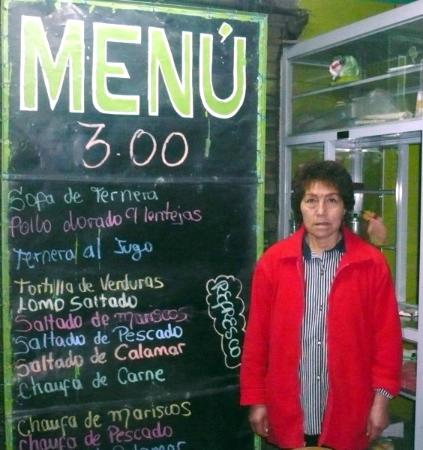 MENÚ
3.00
Sopa de Ternera
Pollo dorado y lentejas
Ternera al Jugo
Tortilla de Verduras
Lomo Saltado
Saltado de Mariscos
Saltado de Pescado
Saltado de Calamar
Chaufa de Carne
REFRESCO
Chaufa de Mariscos
Chaufa de Pescado
Calamar